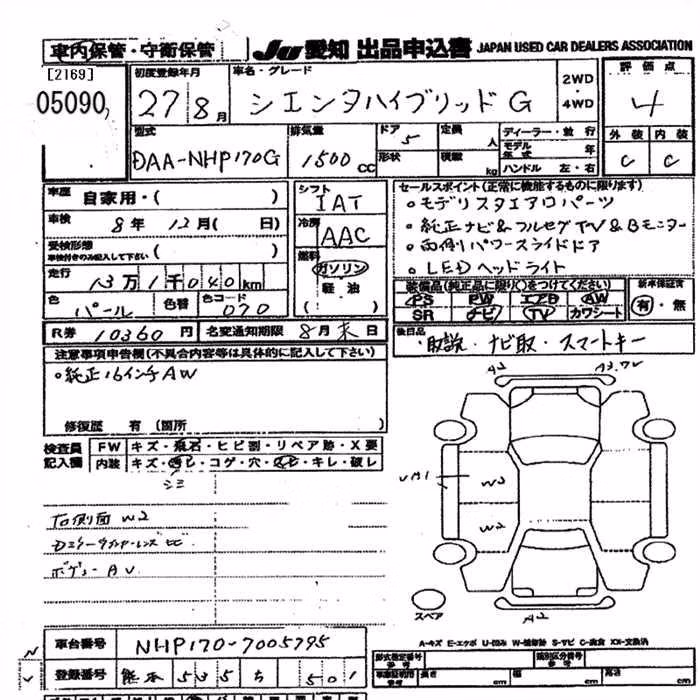 車内保管・守衛保管 JU 愛知 出品申込書 JAPAN USED CAR DEALERS ASSOCIATION
[2169]
05090
初度登録年月 27 8月
車名・グレード シエンタハイブリッド G
2WD・4WD
評価点 4
外装 C 内装 C
型式 DAA-NHP170G
排気量 1500 CC
ドア 5
形状
定員 人
積載 kg
ディーラー・並行
モデル年式 年
ハンドル 左・右
車歴 自家用・( )
車検 8年 12月( 日)
受検形態
車検付きのみ記入して下さい ( )
走行 13万1千040km
色 パール 色替 色コード 070
シフト IAT
冷房 AAC
燃料 ガソリン
軽油
( )
セールスポイント(正常に機能するものに限ります)
・モデリスタエアロパーツ
・純正ナビ&フルセグTV&Bモニター
・両側パワースライドドア
・LEDヘッドライト
装備品(純正品に限り○をつけてください)
PS PW エアB AW
SR ナビ TV カワシート
新車保証書
有・無
R券 10360円 名変通知期限 8月末日
後日品
・取説・ナビ取・スマートキー
注意事項申告欄(不具合内容等は具体的に記入して下さい)
・純正16インチAW
修復歴 有(箇所 )
検査員記入欄
FW キズ・飛石・ヒビ割・リペア跡・X要
内装 キズ・汚レ・コゲ・穴・スレ・キレ・破レ
シミ
右側面 W2
ボデー AU
A2
W2
W2
A2
スペア
A-キズ E-エクボ U-凹み W-補修跡 S-サビ C-腐食 XX-交換済
車台番号 NHP170-7005795
登録番号 熊本 535 ち 501
形式指定番号 参考
類別区分番号 参考
車庫証明用 参考 長さ cm 幅 cm 高さ cm